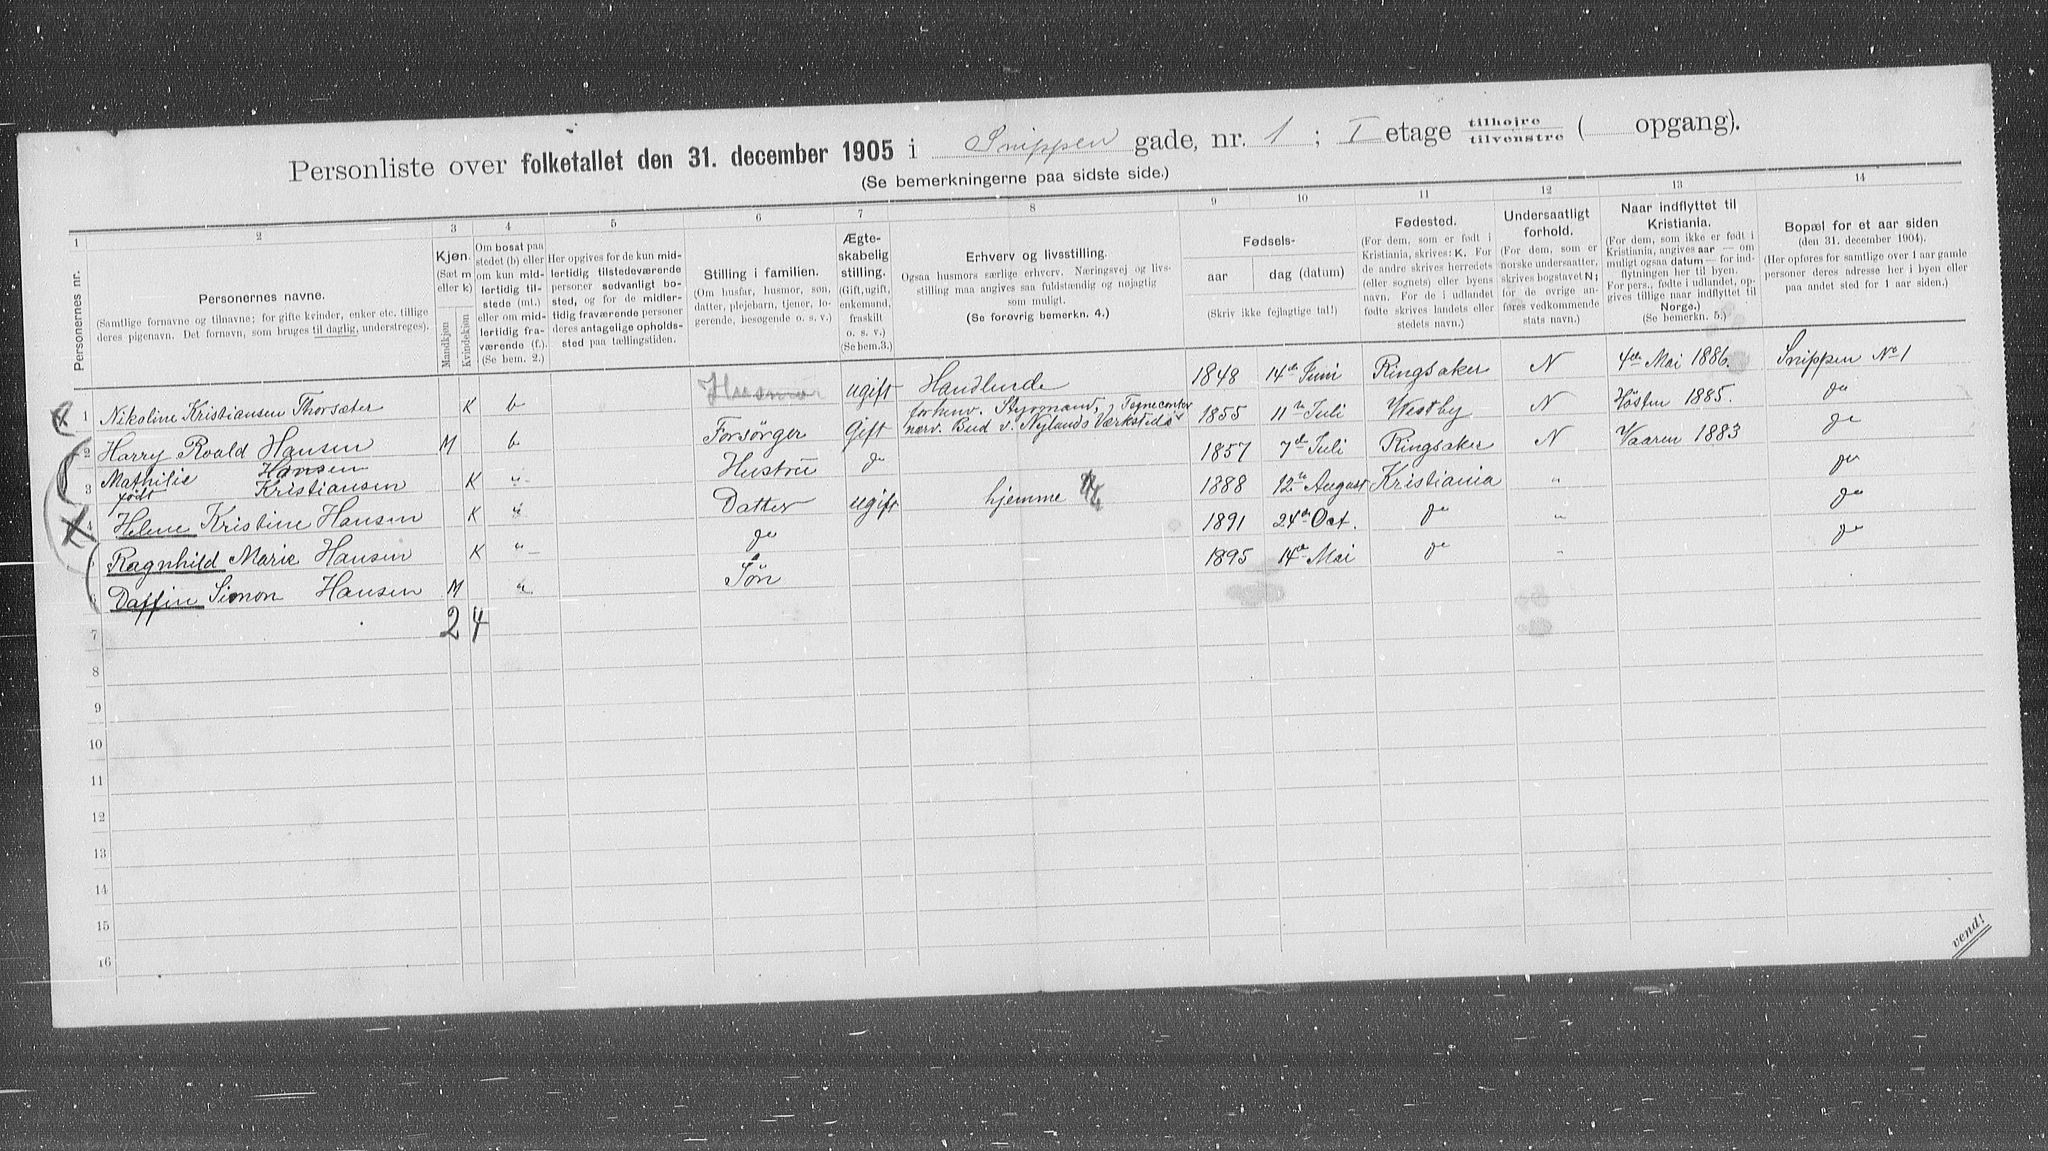 Personliste over folketallet den 31. december 1905 i Snippen gade, nr. 1 ; I etage tilhøjre tilvenstre ( opgang).
(Se bemerkningerne paa sidste side.)
1 2 3 4 5 6 7 8 9 10 11 12 13 14
Personernes nr.
Personernes navne.
(Samtlige fornavne og tilnavne; for gifte kvinder, enker etc. tillige
deres pigenavn. Det fornavn, som bruges til daglig, understreges).
Kjøn.
(Sæt m
eller k)
Mandkjøn
Kvindekjøn
Om bosat paa
stedet (b) eller
om kun mid-
lertidig til-
stede (mt.)
eller om mid-
lertidig fra-
værende (f.).
(Se bem. 2.)
Her opgives for de kun mid-
lertidig tilstedeværende
personer sedvanligt bo-
sted, og for de midler-
tidig fraværende personer
deres antagelige opholds-
sted paa tællingstiden.
Stilling i familien.
(Om husfar, husmor, søn,
datter, plejebarn, tjener, lo-
gerende, besøgende o. s. v.)
Ægte-
skabelig
stilling.
(Gift, ugift,
enkemand,
fraskilt
o. s. v.)
(Se bem.3.)
Erhverv og livsstilling.
Ogsaa husmors særlige erhverv. Næringsvej og livs-
stilling maa angives saa fuldstændig og nøjagtig
som muligt.
(Se forøvrig bemerkn. 4.)
Fødsels-
aar dag (datum)
(Skriv ikke fejlagtige tal!)
Fødested.
(For dem, som er født i
Kristiania, skrives: K. For
de andre skrives herredets
(eller sognets) eller byens
navn. For de i udlandet
fødte skrives landets eller
stedets navn.)
Undersaatligt
forhold.
(For dem, som er
norske undersaatter,
skrives bogstavet N;
for de øvrige an-
føres vedkommende
stats navn.)
Naar indflyttet til
Kristiania.
(For dem, som ikke er født i
Kristiania, angives aar — om
muligt ogsaa datum — for ind-
flytningen her til byen.
For pers., fødte i udlandet, op-
gives tillige naar indflyttet til
Norge.)
(Se bemerkn. 5.)
Bopæl for et aar siden
(den 31. december 1904).
(Her opføres for samtlige over 1 aar gamle
personer deres adresse her i byen eller
paa andet sted for 1 aar siden.)
1 Nikoline Kristiansen Thorsæter K b Husmor ugift Handlende 1848 14de Juni Ringsaker N 4de Mai 1886. Snippen No 1
2 Harry Roald Hansen M b Forsörger Gift forhenv. Styrmand, Tegnecontor 1855 11te Juli Westby N Hösten 1885. do
nærv. Bud v. Nylands Værksteds
3 Mathilie Hansen K " Hustru do 1857 7de Juli Ringsaker N Vaaren 1883 do
født Kristiansen
4 Helene Kristine Hansen K " Datter ugift hjemme 1888 12te August Kristiania " do
5 Ragnhild Marie Hansen K " do 1891 24de Oct. do " do
6 Daffin Simon Hansen M " Sön 1895 14de Mai do " do
7 2 4
8
9
10
11
12
13
14
15
16
vend!